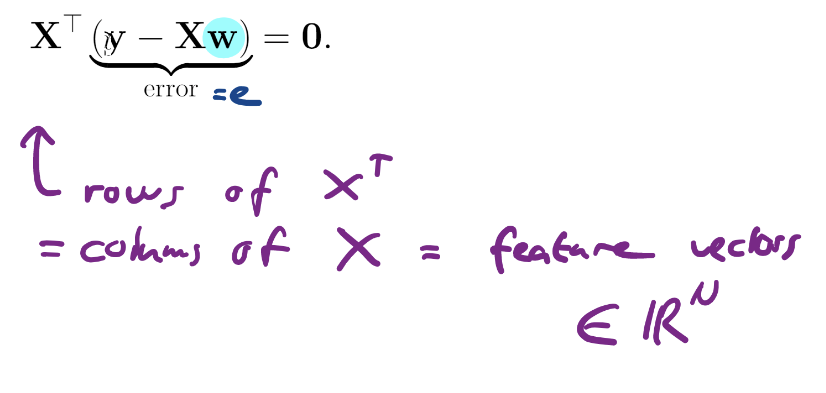 X⊤ (y − Xw) = 0.
error = e
rows of X^T
= colums of X = feature vectors
∈ ℝ^N